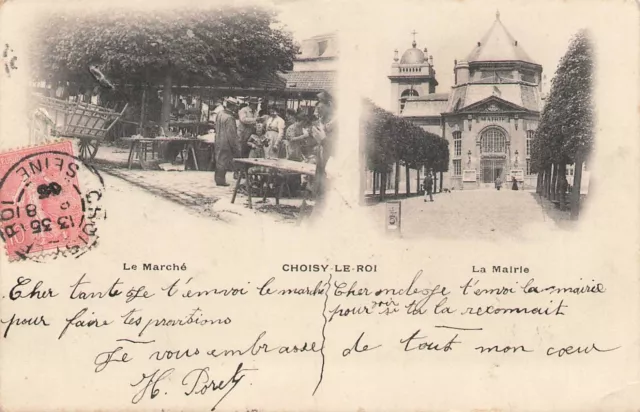 MAIRIE
CHOISY
SEINE
13 35
8
03
ROI
Le Marché
CHOISY-LE-ROI
La Mairie
Cher tante Je t'envoi le marché
pour faire tes provisions
Cher oncle Je t'envoi la mairie
pour voir si tu la reconnait
Je vous embrasse de tout mon coeur
H. Poret